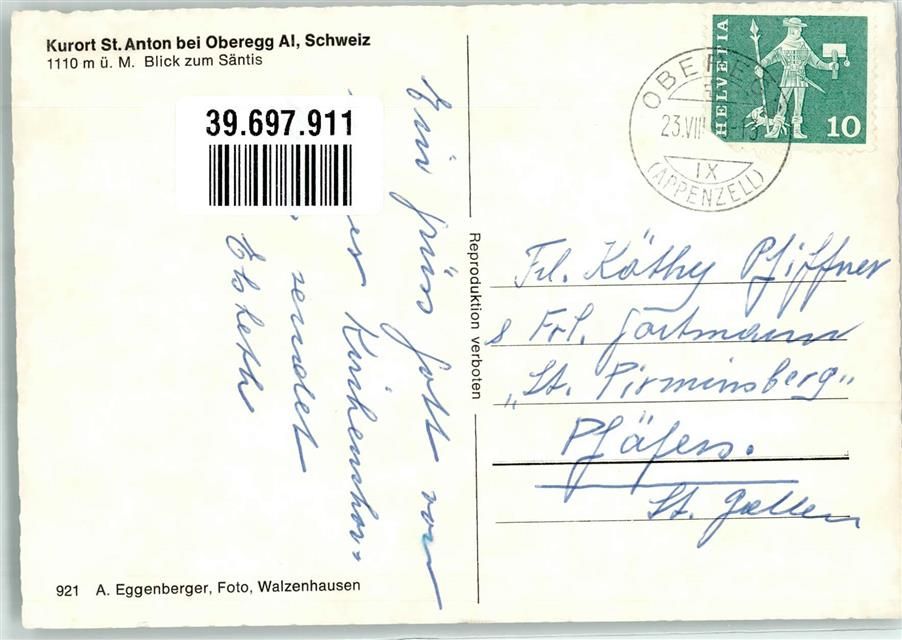 Kurort St. Anton bei Oberegg AI, Schweiz
1110 m ü. M. Blick zum Säntis
39.697.911
Ein grüss gott vom
Kirchenchor
sendet
Elsbeth
Reproduktion verboten
HELVETIA
10
OBEREGG
23.VIII
IX
(APPENZELL)
Frl. Käthy Pfiffner
Frl. Gartmann
"St. Pirminsberg"
Pfäfers.
St. Gallen
921 A. Eggenberger, Foto, Walzenhausen